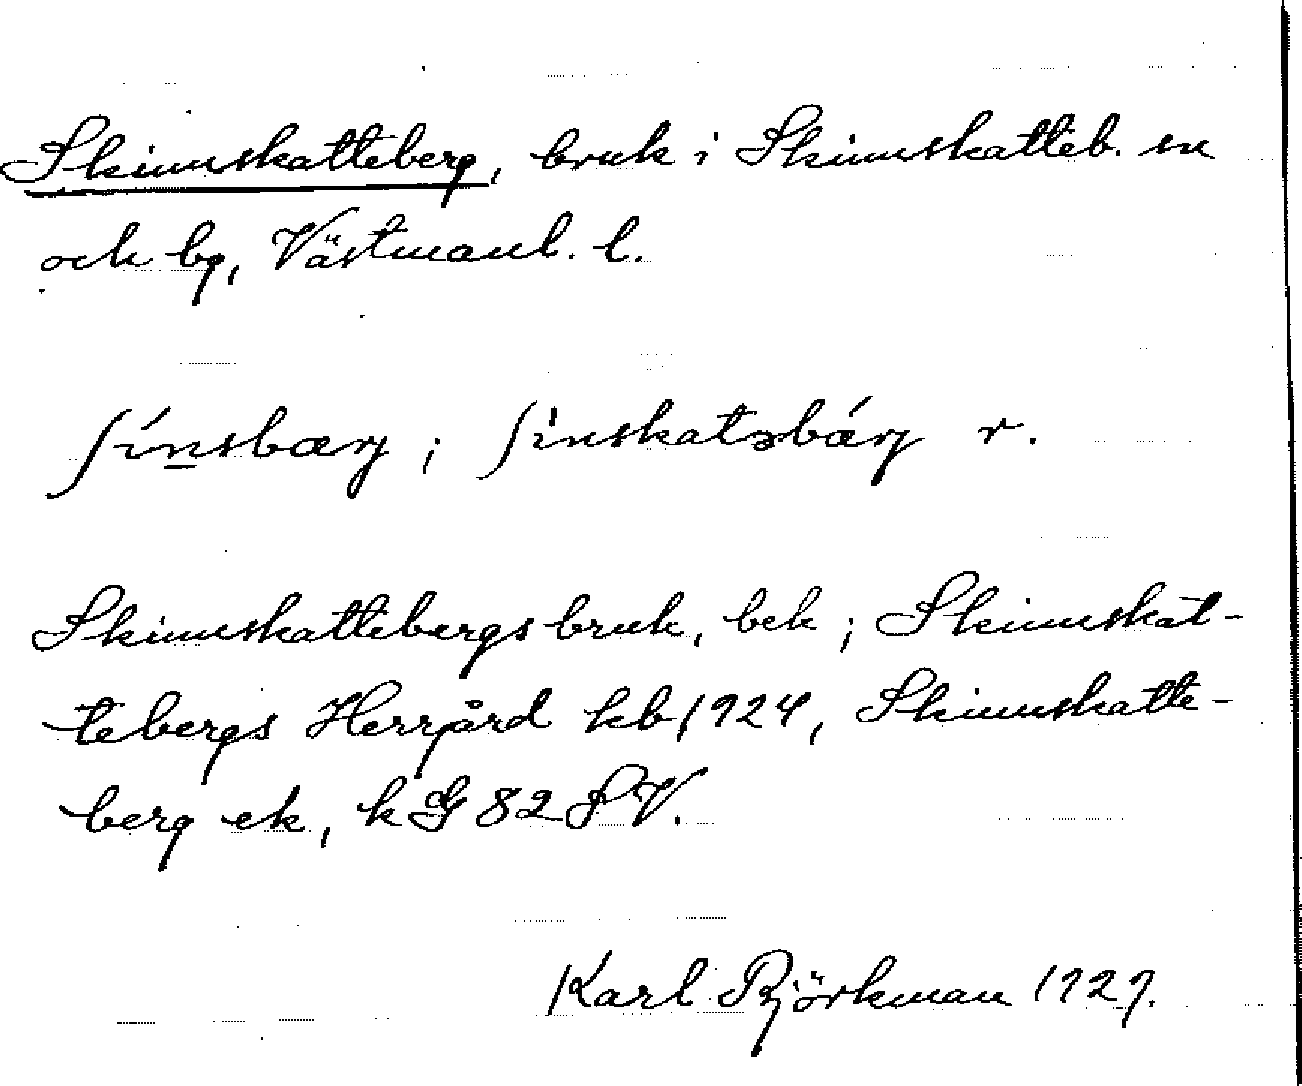 Skinnskatteberg, bruk i Skinnskatteb. sn
och bg, Västmanl. l.
ʃínsbærj ; ʃìnskatəbǽrj r.
Skinnskattebergs bruk, bek ; Skinnskat-
tebergs Herrgård kb 1924, Skinnskatte-
berg ek, kG 82 SV.
Karl Björkman 1927.